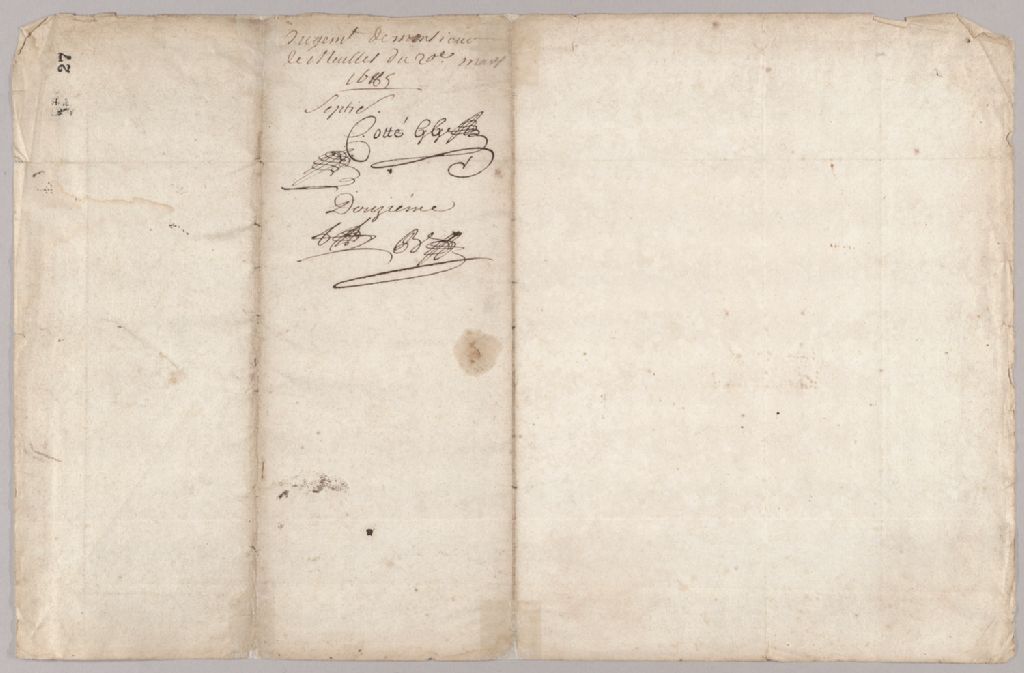 27
Jugemt de monsieur
de Meulles du 20e mars
1685
Septie.
Cotté
Douziéme